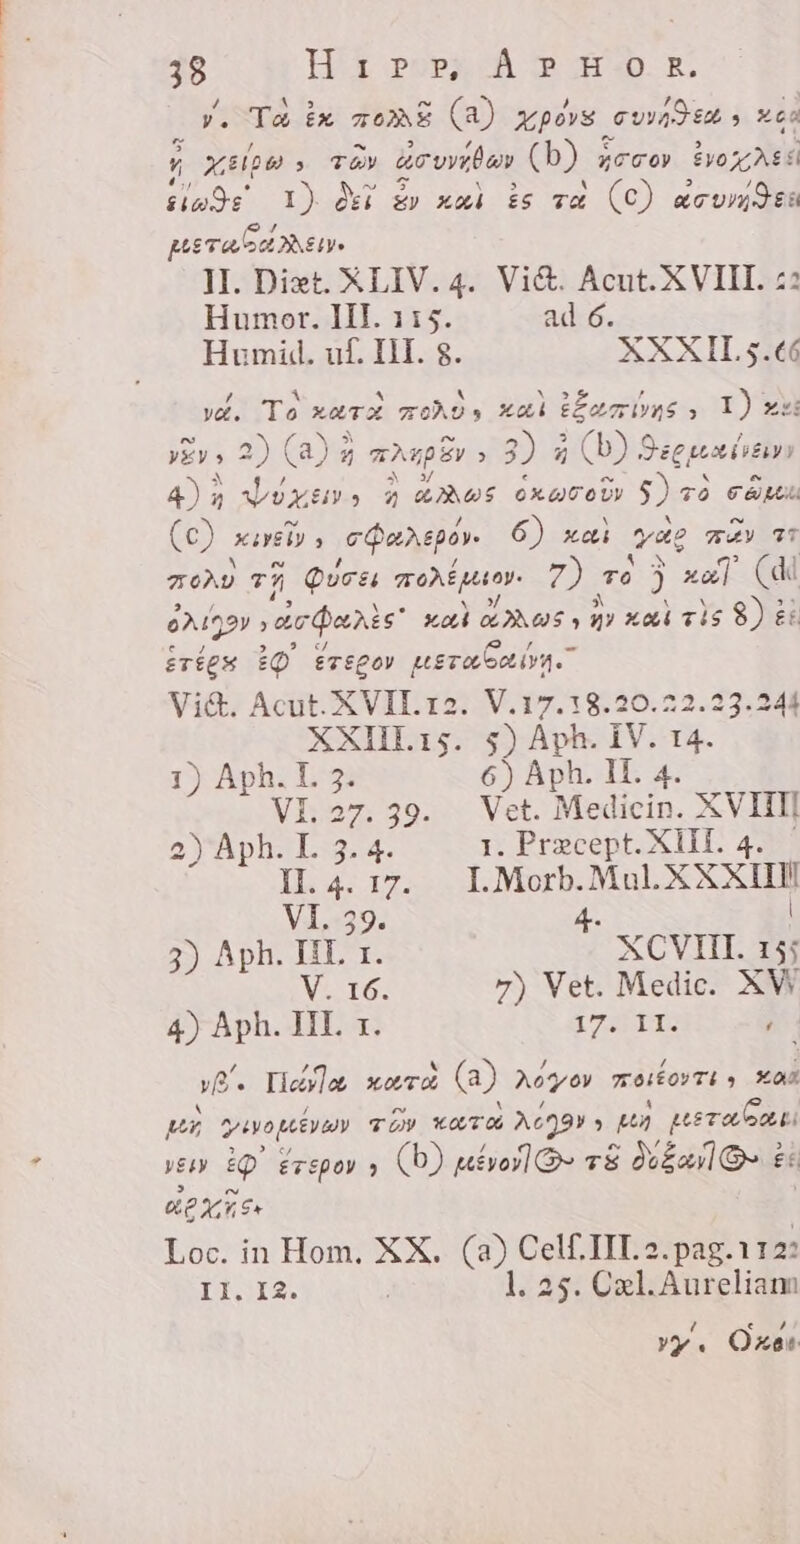 38 HIPP. APHOR.
ν. Τὰ ἐκ πολλȣ̃ (a) χρόνȣ συνήθεα,
ἢ χείρω, τῶν ἀσυνήθων (b) ἧσσον ἐνοχλεῖ
εἴωθε· 1) δεῖ ȣ̓ν καὶ ἐς τὰ (c) ἀσυνήθεα
μεταβάλλειν.
II. Diæt. XLIV. 4. Vict. Acut. XVIII.
Humor. III. 115. ad 6.
Humid. uſ. III. 8. XXXII. 5.
να. Τὸ κατὰ πολὺ, καὶ ἐξαπίνης, 1)
νȣ̃ν, 2) (a) ἢ πληρȣ̃ν, 3) ἢ (b) θερμαίνειν,
4) ἢ ψύχειν, ἢ ἄλλως ὁκωσοῦν 5) τὸ σῶμα
(c) κινεῖν, σφαλερόν. 6) καὶ γὰρ πᾶν τὸ
πολὺ τῇ Φύσει πολέμιον. 7) τὸ δὲ κατ’
ὀλίγον, ἀσφαλὲς· καὶ ἄλλως, ἢν καὶ τὶς 8) ἐξ
ἑτέρȣ ἐφ’ ἕτερον μεταβαίνῃ.
Vict. Acut. XVII. 12. V. 17. 18. 20. 22. 23. 24
XXIII. 15. 5) Aph. IV. 14.
1) Aph. I. 3. 6) Aph. II. 4.
VI. 27. 39. Vet. Medicin. XVIIII
2) Aph. I. 3. 4. 1. Præcept. XIII. 4.
II. 4. 17. I. Morb. Mul. XXXIIII
VI. 39. 4.
3) Aph. III. 1. XCVIII. 15
V. 16. 7) Vet. Medic. XV
4) Aph. III. 1. 17. II.
νβ. Πάντα κατὰ (a) λόγον ποιέοντι, καὶ
μὴ γινομένων τῶν κατὰ λόγον, μὴ μεταβαί
νειν ἐφ’ ἕτερον, (b) μένοντος τȣ̃ δόξαντος ἐξ
ἀρχῆς.
Loc. in Hom. XX. (a) Celſ. III. 2. pag. 112
II. 12. l. 25. Cæl. Aurelian
νγ. Ὁκό